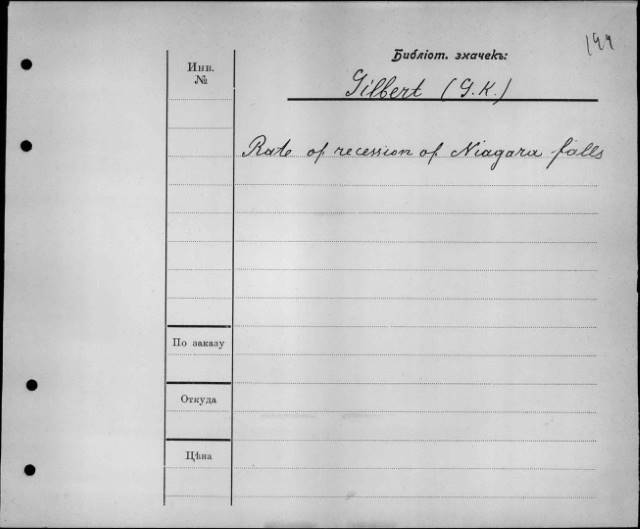 199
Библіот. значекъ:
Инв.
№
Gilbert (G.K.)
Rate of recession of Niagara falls
По заказу
Откуда
Цѣна